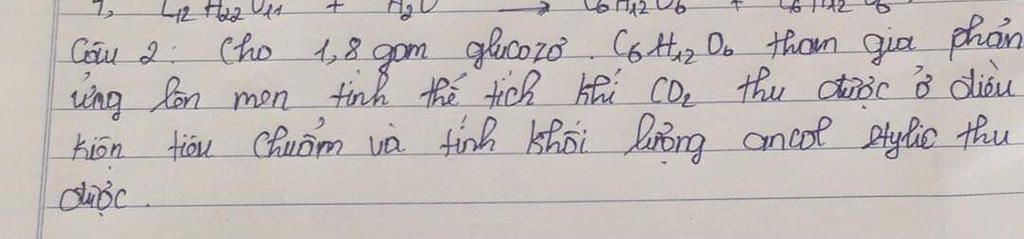 C12 H22 O11 + H2O → C6 H12 O6 + C6 H12 O6
Câu 2: Cho 1,8 gam glucozơ. C6H12O6 tham gia phản
ứng lên men tính thể tích khí CO2 thu được ở điều
kiện tiêu chuẩn và tính khối lượng ancol etylic thu
được.